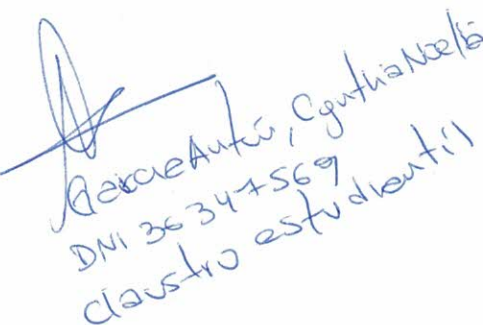 Garcia Antún, Cynthia Noelia
DNI 36347569
claustro estudiantil